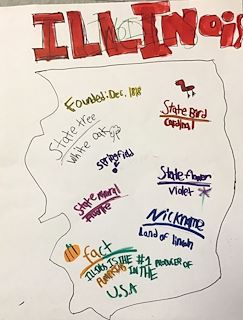 ILLINois
Founded: Dec. 1818
State Bird
Cardinal
State tree
White oak
Springfield
State flower
Violet
State Mineral
Fluorite
Nickname
Land of Lincoln
fact
ILLINOIS IS THE #1 PRODUCER OF
PUMPKINS IN THE
U.S.A